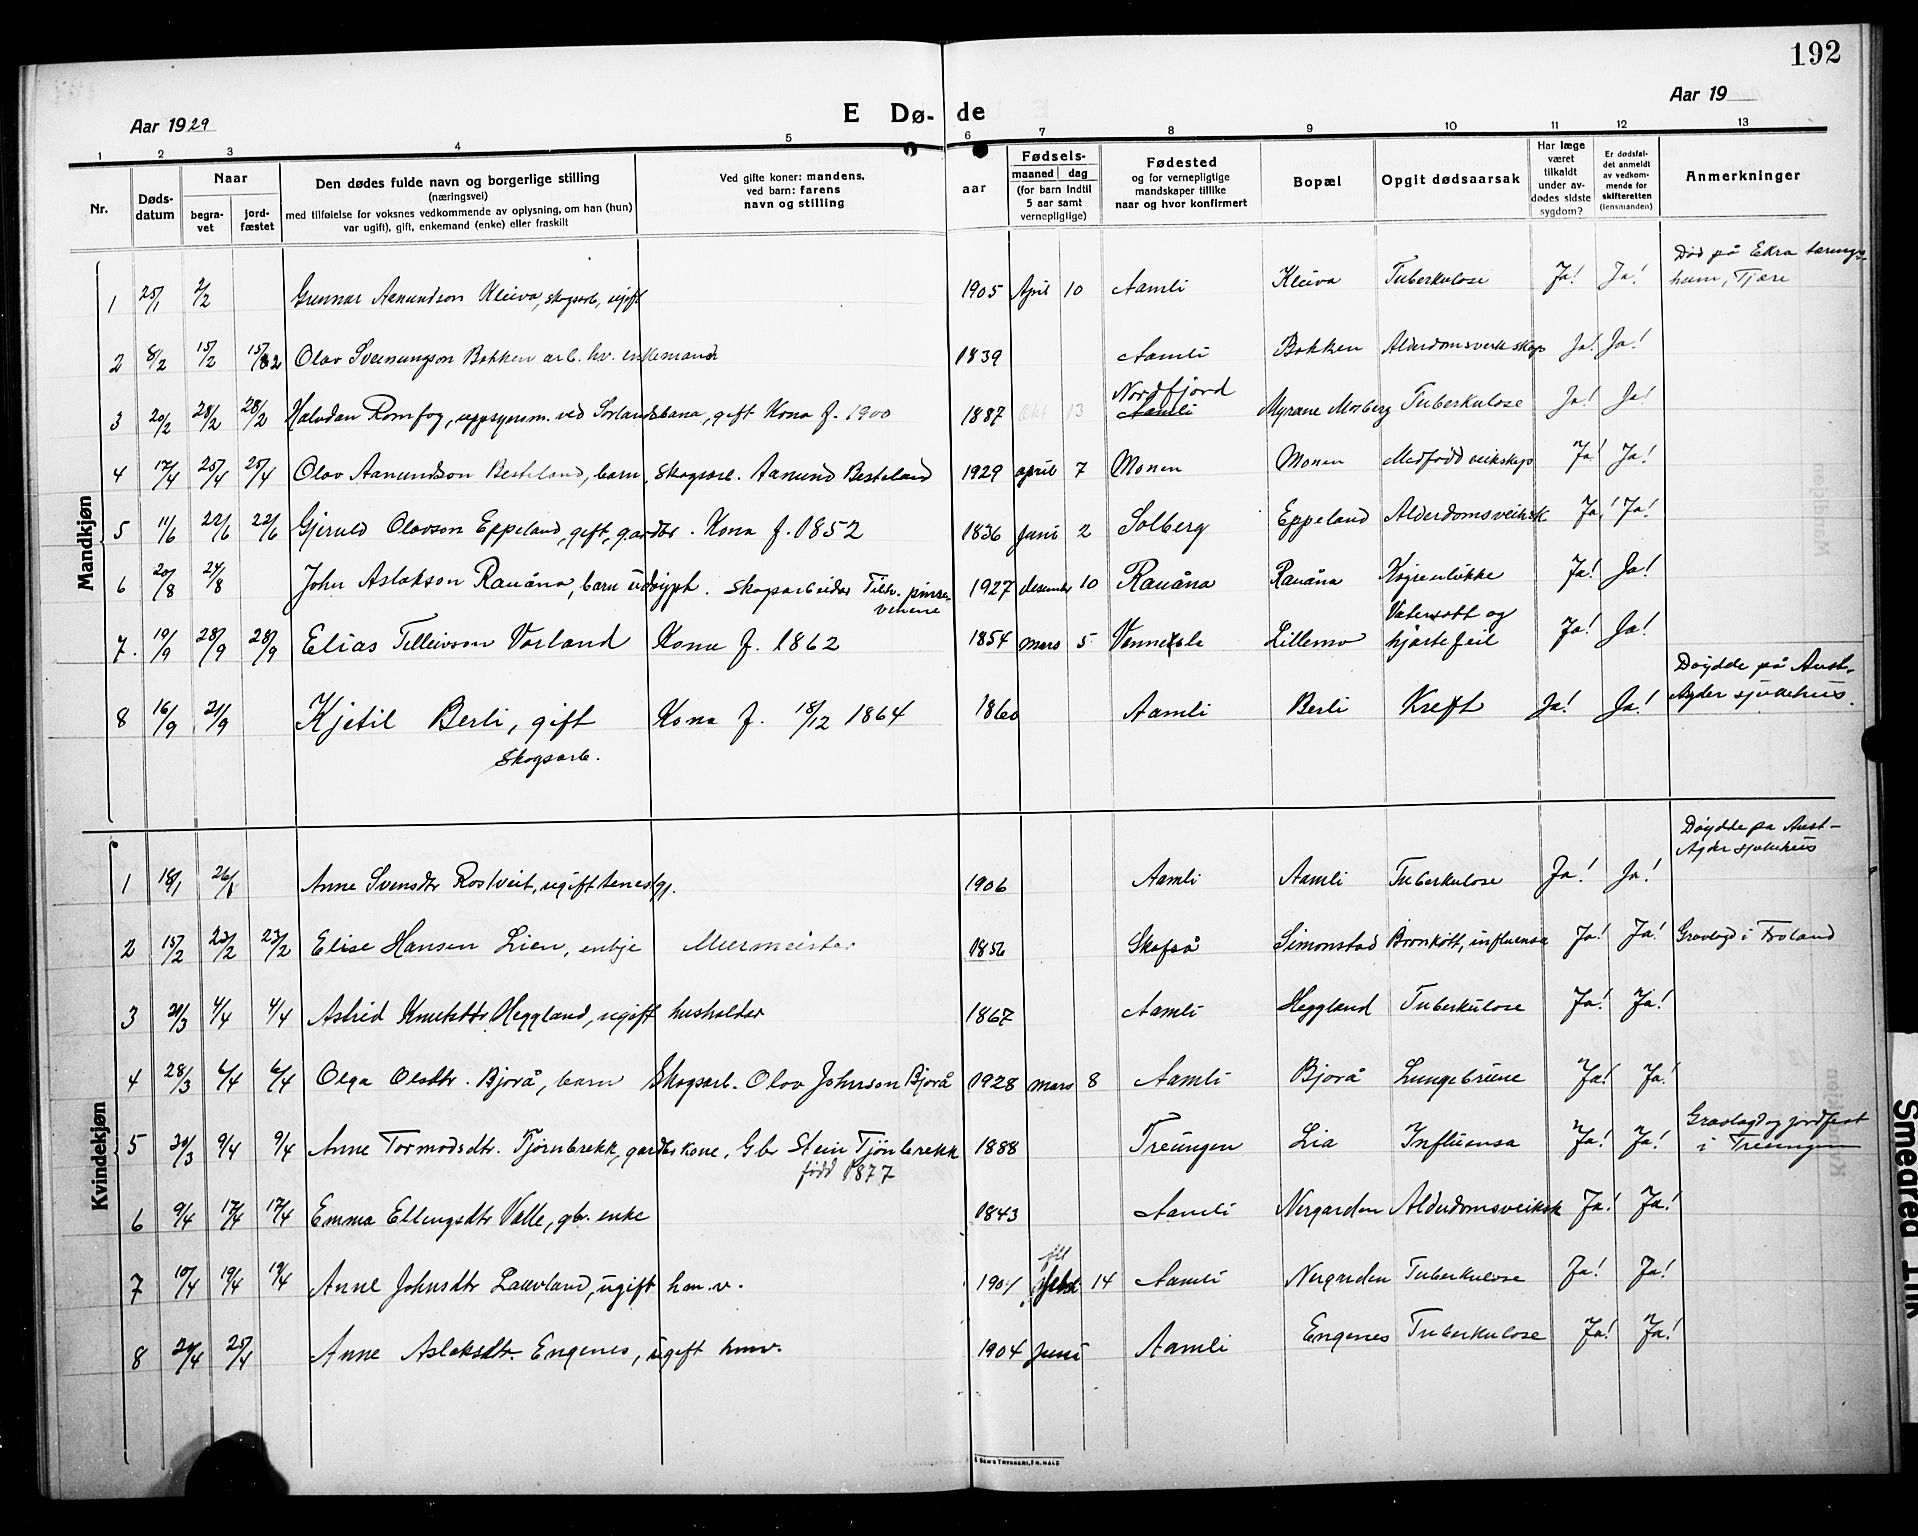 192
Aar 1929
E Dø-de
Aar 19
1 2 3 4 5 6 7 8 9 10 11 12 13
Nr.
Døds-datum
Naar
begra-vet
jord-fæstet
Den dødes fulde navn og borgerlige stilling
(næringsvei)
med tilføielse for voksnes vedkommende av oplysning, om han (hun)
var ugift), gift, enkemand (enke) eller fraskilt
Ved gifte koner: mandens,
ved barn: farens
navn og stilling
aar
Fødsels-
maaned dag
(for barn indtil
5 aar samt
vernepligtige)
Fødested
og for vernepligtige
mandskaper tillike
naar og hvor konfirmert
Bopæl
Opgit dødsaarsak
Har læge
været
tilkaldt
under av-
dødes sidste
sygdom?
Er dødsfal-
det anmeldt
av vedkom-
mende for
skifteretten
(lensmanden)
Anmerkninger
Mandkjøn
1 25/1 2/2 Gunnar Aanundson Kleiva, skogsarb, ugift 1905 April 10 Aamli Kleiva Tuberkulose Ja! Ja! Død på Ekra tærings-
heim, Tjøre
2 8/2 15/2 15/2 Olav Sveinungson Bakken arb. hv. enkemand 1839 Aamli Bakken Alderdomsveikskap Ja! Ja!
3 20/2 28/2 28/2 Halvdan Romfog, uppsynsm. ved Sørlandsbana, gift Kona f. 1900 1887 Okt 13 Nordfjord Aamli Myrane Mosberg Tuberkulose Ja! Ja!
4 17/4 25/4 25/4 Olav Aanundson Besteland, barn, Skogsarb. Aanund Besteland 1929 april 7 Monen Monen Medfødd veikskap Ja! Ja!
5 11/6 22/6 22/6 Gjeruld Olavson Eppeland, gift, gardbr. Kona f. 1852 1836 Juni 2 Solberg Eppeland Alderdomsveiksk Ja! Ja!
6 20/8 24/8 John Aslakson Rauåna, barn udøypt. Skogsarbeidar Tilh. pinse-
venene 1927 desember 10 Rauåna Rauåna Ja! Ja!
7. 19/9 28/9 28/9 Elias Telleivson Vorland Kona f. 1862 1854 mars 5 Vennesla Lillemo Vatersott og
hjartefeil Ja! Ja!
8 16/9 21/9 Kjetil Berli, gift
Skogsarb. Kona f. 18/12 1864 1860 Aamli Berli Kreft Ja! Ja! Døydde på Aust-
Agder sjukehus.
Kvindekjøn
1 18/1 26/1 Anne Svensdtr Rostveit, ugift tenestgj. 1906 Aamli Aamli Tuberkulose Ja! Ja! Døydde pa Aust-
Agder sjukehus
2 15/2 23/2 23/2 Elise Hansen Lien, enkje Murmeister 1856 Skafså Simonstad Bronkitt, influensa Ja! Ja! Gravlagd i Froland
3 21/3 4/4 4/4 Astrid Knutsdtr Heggland, ugift husholder 1867 Aamli Heggland Tuberkulose Ja! Ja!
4 28/3 6/4 6/4 Olga Olsdtr. Bjorå, barn Skogsarb. Olav Johnson Bjorå 1928 mars 8 Aamli Bjorå Lungebrune Ja! Ja!
5 30/3 9/4 9/4 Anne Tormodsdtr. Tjørnbrekk, gardbrkone, Gbr Stein Tjönbrekk
född 1877 1888 Treungen Lia Influensa Ja! Ja! Gravlagd og jordfest
i Treungen
6 9/4 17/4 17/4 Emma Ellingsdtr Valle, gbr. enke 1843 Aamli Nergarden Alderdomsveiksk Ja! Ja!
7 10/4 19/4 19/4 Anne Johnsdtr Lauvland, ugift hm. v. 1901 14 Aamli Nergarden Tuberkulose Ja! Ja!
8 20/4 25/4 Anne Aslaksdtr. Engenes, ugift hmv. 1904 Juni Aamli Engenes Tuberkulose Ja! Ja!